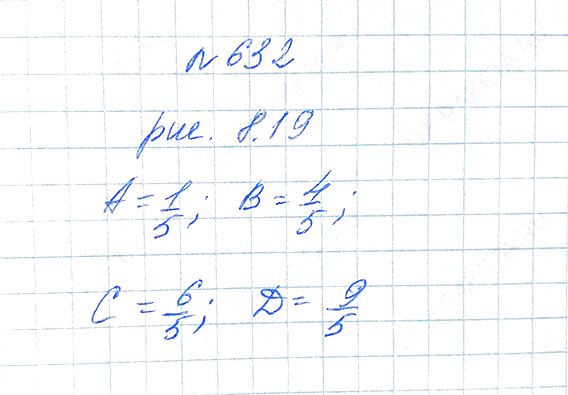 № 632
рис. 8.19
A = 1/5; B = 4/5;
C = 6/5; D = 9/5